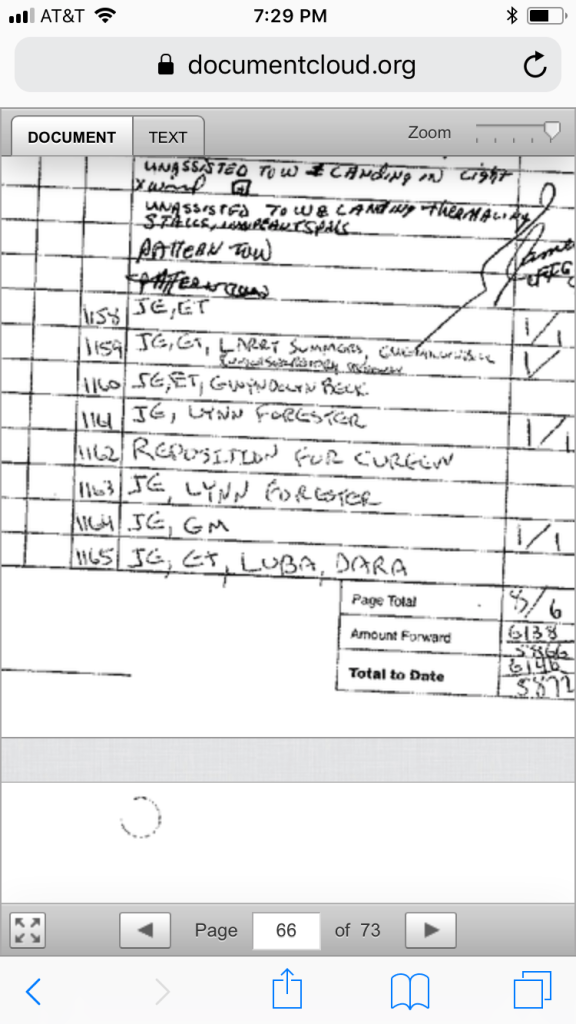 AT&T 7:29 PM
documentcloud.org
DOCUMENT TEXT Zoom
UNASSISTED TOW & LANDING IN LIGHT
UNASSISTED TOW & LANDING THERMALING
STALLS,
PATTERN TOW
1158 JE, ET 1/1
1159 JE, ET, LARRY SUMMERS,
1160 JE, ET, GWENDOLYN BECK
1161 JE, LYNN FORESTER 1/1
1162 REPOSITION FOR CUREEW
1163 JE, LYNN FORESTER
1164 JE, GM 1/1
1165 JE, ET, LUBA, DARA
Page Total 8/6
Amount Forward 6138
5866
Total to Date 6146
5872
Page 66 of 73